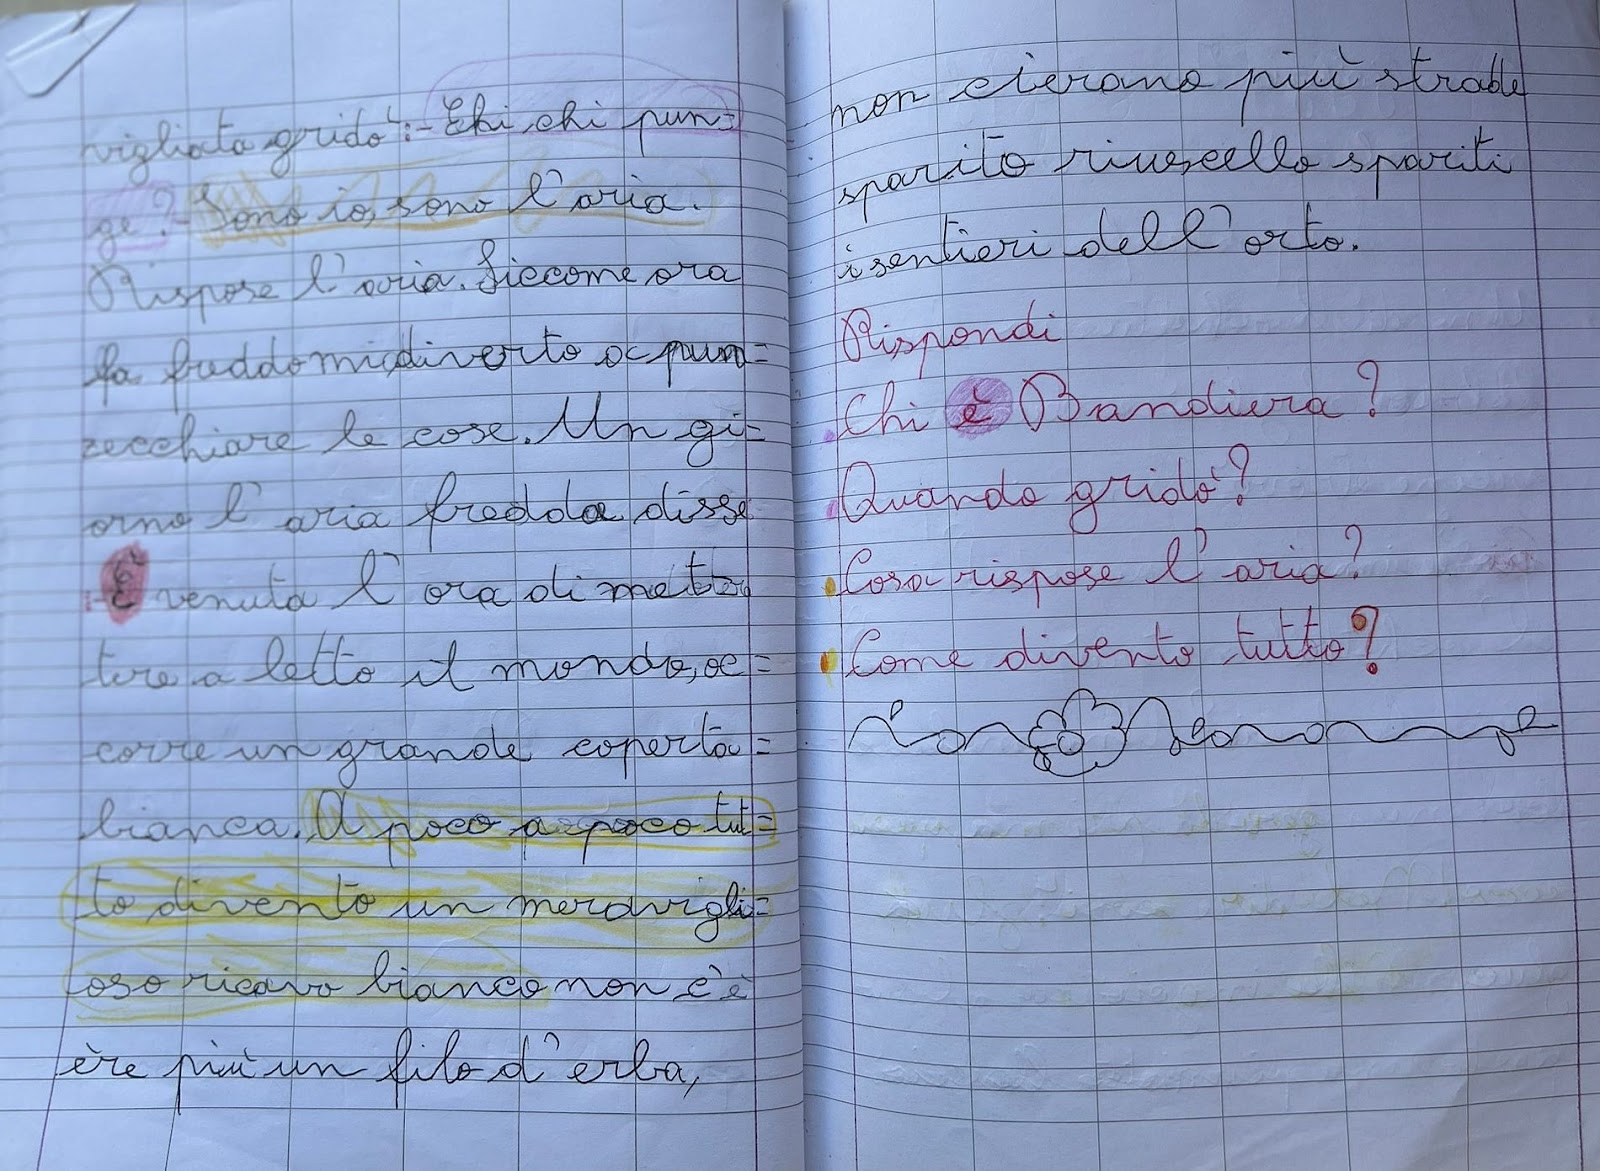 vigliata gridò:- Chi, chi pun=
ge?- Sono io, sono l'aria.
Rispose l'aria. Siccome ora
fa freddo mi diverto a pun=
zecchiare le cose. Un gi=
orno l'aria fredda disse
:- È venuta l'ora di mettere
tere a letto il mondo, oc=
corre un grande coperta=
bianca. A poco a poco tut=
to diventò un meravigli=
oso ricavo bianco non c'è
ère più un filo d'erba,
non cierano più strade
sparito riuscello spariti
i sentieri dell'orto.
Rispondi
Chi è Bandiera?
Quando gridò?
Cosa rispose l'aria?
Come divento tutto?